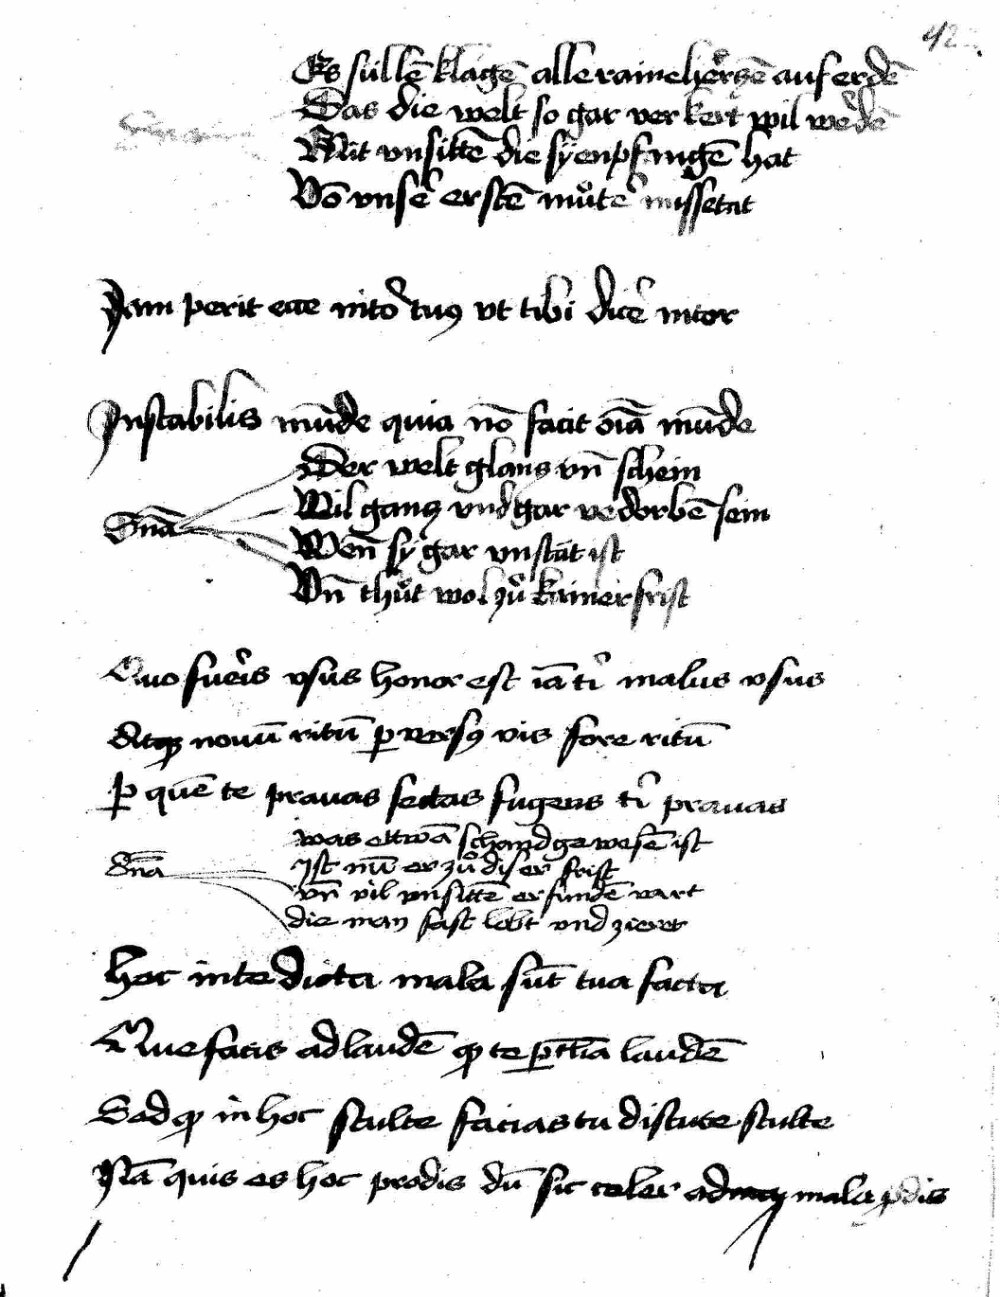 42
Es süllē klagē alle raine hertzē auf erdē
Das die welt so gar verkert wil wedē
Mit vnsittē die sy enpfangē hat
Vō vnser erstē můter missetat
Jam perit ecce nitor tuus vt tibi dicere nitor
Instabilis mūde quia nō facit oīa mūde
Der welt glantz vn̄ schein
Wil gantz vnd gar vedorbē sein
Snīa
Wen̄ sy gar vnstät ist
Vn̄ thůt wol zů kainer frist
Quo fueris vsus honor est iā tī malus vsus
Atq; nouū ritū peruersus vis fore ritū
Per quē te prauas sectas fugens tī prauas
was ettwā schand gewesē ist
Snīa
Jst nū er zů diser frist
vn̄ vil vnsittē erfundē wart
die man fast lebt vnd zieret
Hec inte dicta mala sūt tua facta
Que facis ad laudē q te laudē
Sed q in hoc stulte facias tu discute stulte
Nā quis es hoc prodis dū sic celer ad mala prodis